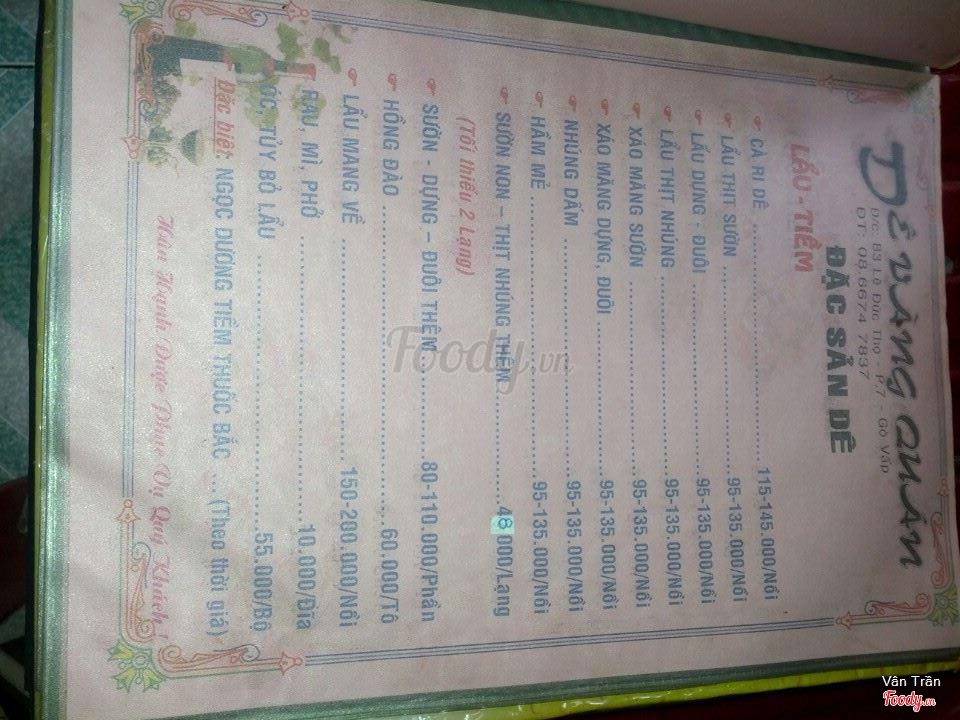 DÊ VÀNG QUÁN
Đ/c: 83 Lê Đức Thọ - P.7 - Gò Vấp
ĐT: 08.6674 7837
ĐẶC SẢN DÊ
LẨU - TIỀM
CÀ RI DÊ ............115-145.000/Nồi
LẨU THỊT SƯỜN ............95-135.000/Nồi
LẨU DỰNG - ĐUÔI ............95-135.000/Nồi
LẨU THỊT NHÚNG ............95-135.000/Nồi
XÁO MĂNG SƯỜN ............95-135.000/Nồi
XÁO MĂNG DỰNG, ĐUÔI ............95-135.000/Nồi
NHÚNG DẤM ............95-135.000/Nồi
HẦM MẺ ............95-135.000/Nồi
SƯỜN NON – THỊT NHÚNG THÊM ............48.000/Lạng
(Tối thiểu 2 Lạng)
SƯỜN - DỰNG – ĐUÔI THÊM ............80-110.000/Phần
HỒNG ĐÀO ............60.000/Tô
LẨU MANG VỀ ............150-200.000/Nồi
RAU, MÌ, PHỞ ............10.000/Dĩa
ÓC, TỦY BỎ LẨU ............55.000/Bộ
Đặc biệt: NGỌC DƯƠNG TIỀM THUỐC BẮC ....(Theo thời giá)
Hân Hạnh Được Phục Vụ Quý Khách !
Foody.vn
Vân Trần
Foody.vn